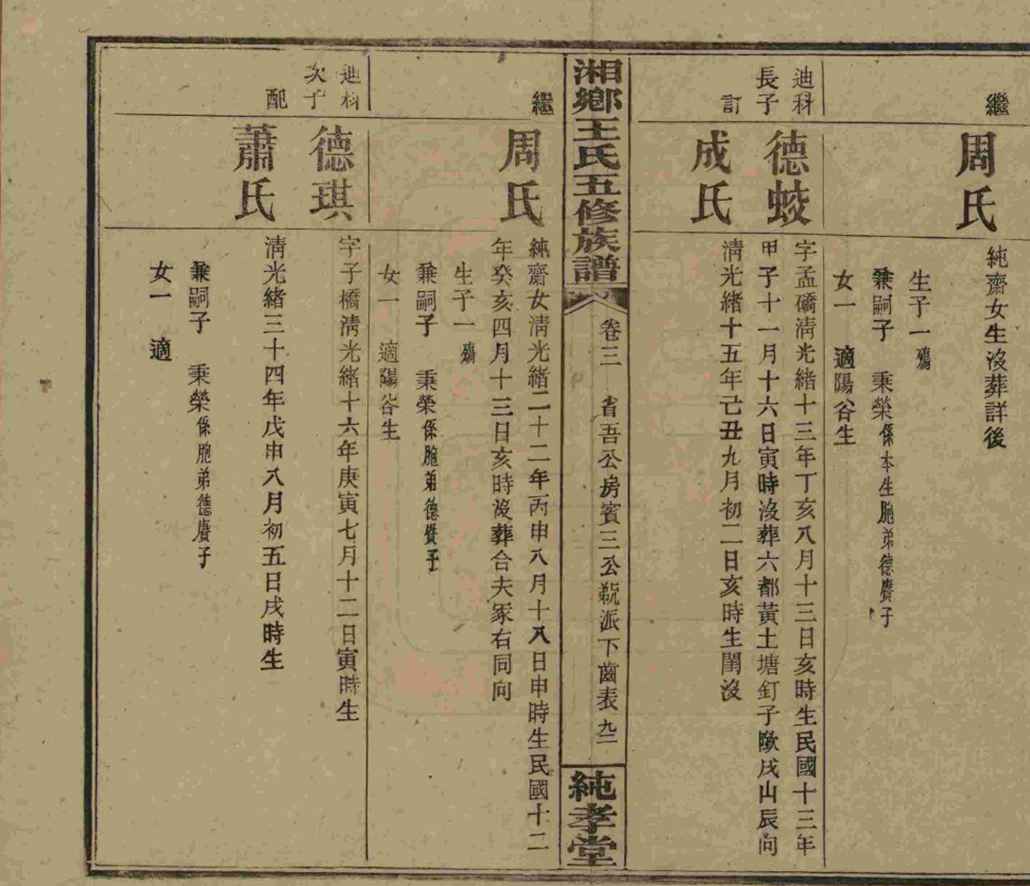 繼
周氏
純齋女生沒葬詳後
生子一殤
兼嗣子 秉榮係本生胞弟德賡子
女一 適陽谷生
迪科
長子
德蛟
字孟礄清光緒十三年丁亥八月十三日亥時生民國十三年
甲子十一月十六日寅時沒葬六都黃土塘釘子隞戌山辰向
訂
成氏
清光緒十五年己丑九月初二日亥時生閨沒
湘鄉王氏五修族譜
卷三 省吾公房賓三公覞派下齒表 九二
純孝堂
繼
周氏
純齋女清光緒二十二年丙申八月十八日申時生民國十二
年癸亥四月十三日亥時沒葬合夫冢右同向
生子一殤
兼嗣子 秉榮係胞弟德賡子
女一 適陽谷生
迪科
次子
德琪
字子橋清光緒十六年庚寅七月十二日寅時生
配
蕭氏
清光緒三十四年戊申八月初五日戌時生
兼嗣子 秉榮係胞弟德賡子
女一 適